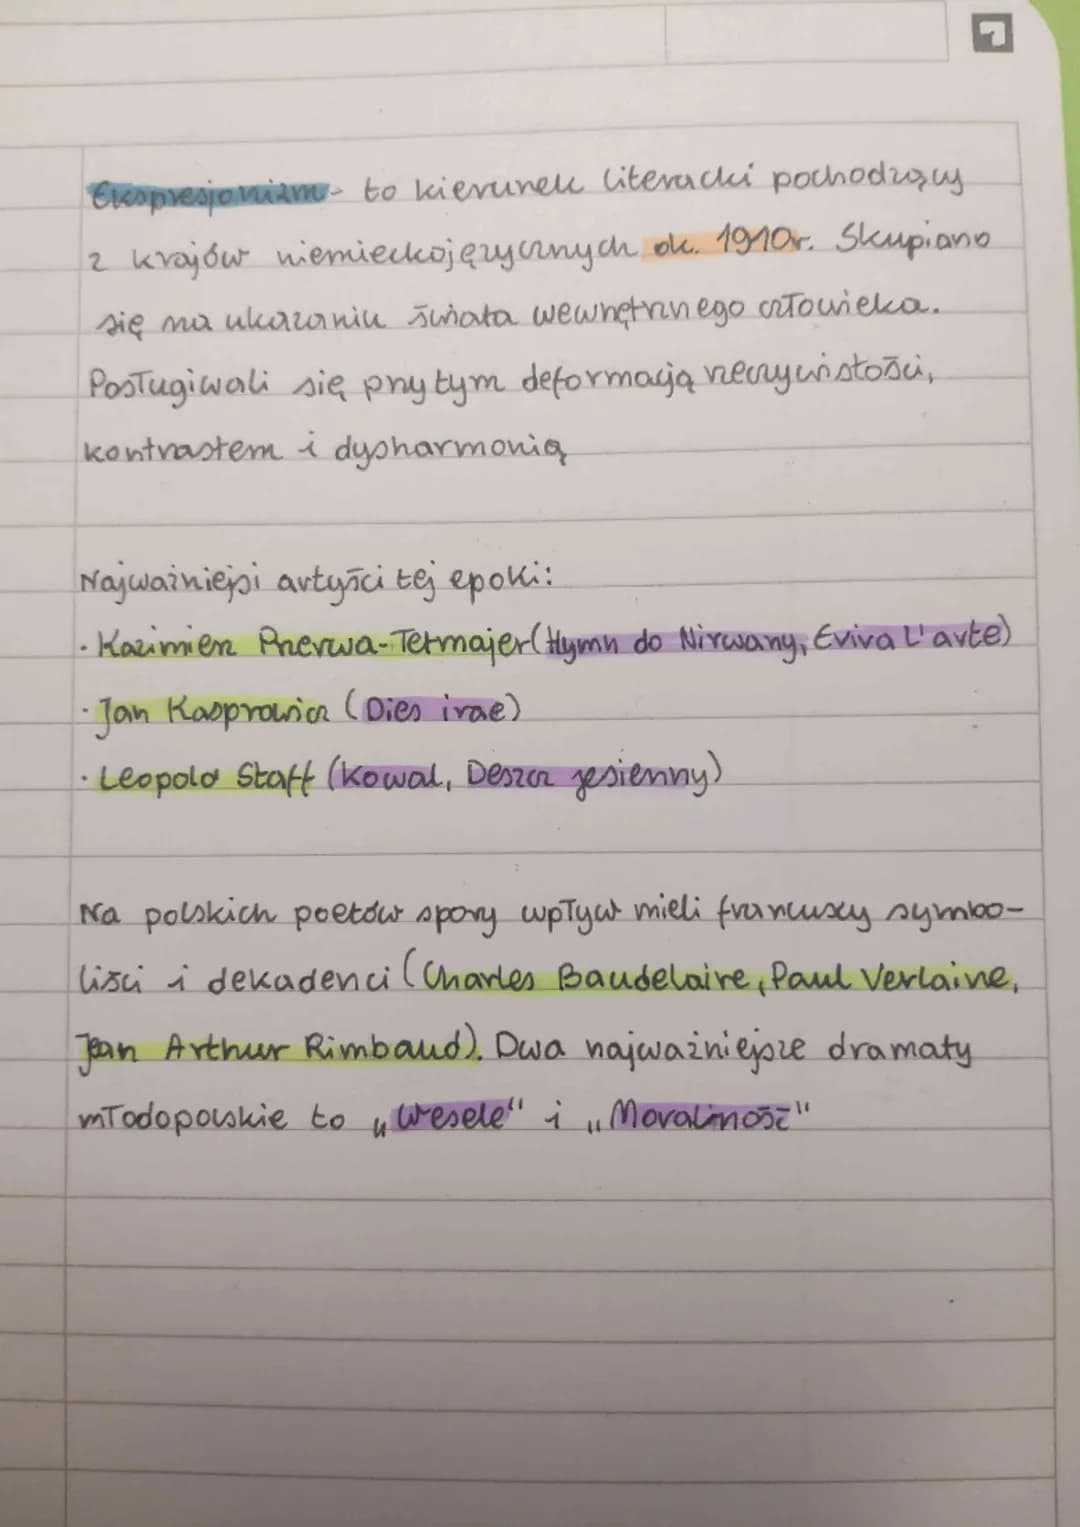 Ekspresjonizm - to kierunek literacki pochodzący
z krajów niemieckojęzycznych ok. 1910r. Skupiano
się na ukazaniu świata wewnętrznego człowieka.
Posługiwali się przy tym deformacją rzeczywistości,
kontrastem i dysharmonią
Najważniejsi artyści tej epoki:
· Kazimierz Przerwa-Termajer (Hymn do Nirwany, Eviva L'arte)
· Jan Kasprowicz (Dies irae)
· Leopold Staff (Kowal, Deszcz jesienny)
Na polskich poetów spory wpływ mieli francuscy symbo-
liści i dekadenci (Charles Baudelaire, Paul Verlaine,
Jean Arthur Rimbaud). Dwa najważniejsze dramaty
młodopolskie to „Wesele" i „Moralność"